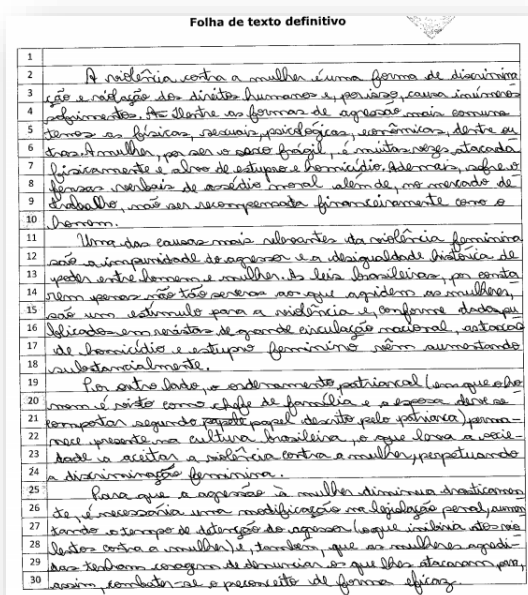 Folha de texto definitivo
1
2 A violência contra a mulher é uma forma de discrimina
3 ção e violação dos direitos humanos e, por isso, causa inúmeros
4 sofrimentos. Dentre as formas de agressão mais comuns
5 temos as físicas, sexuais, psicológicas, econômicas, dentre ou
6 tras. A mulher, por ser o sexo frágil, é muitas vezes atacada
7 fisicamente e alvo de estupro e homicídio. Ademais, sofre o
8 fensas verbais de assédio moral além de, no mercado de
9 trabalho, não ser recompensada financeiramente como o
10 homem.
11 Uma das causas mais relevantes da violência feminina
12 são a impunidade do agressor e a desigualdade histórica de
13 poder entre homem e mulher. As leis brasileiras, por conta
14 rem penas não tão severas aos que agridem as mulheres,
15 são um estímulo para a violência e, conforme dados pu
16 blicados em revistas de grande circulação nacional, as taxas
17 de homicídio e estupro feminino vêm aumentando
18 substancialmente.
19 Por outro lado, o ordenamento patriarcal (em que o ho
20 mem é visto como chefe de família e a esposa deve se
21 comportar segundo papel descrito pelo patriarca) perma-
22 nece presente na cultura brasileira, o que leva a socie
23 dade a aceitar a violência contra a mulher, perpetuando
24 a discriminação feminina.
25 Para que a agressão à mulher diminua drasticamen
26 te, é necessária uma modificação na legislação penal, aumen
27 tando o tempo de detenção do agressor (o que inibiria atos vio
28 lentos contra a mulher) e, também, que as mulheres agredi
29 das tenham coragem de denunciar os que lhes atacaram para,
30 assim, combater-se o preconceito de forma eficaz.